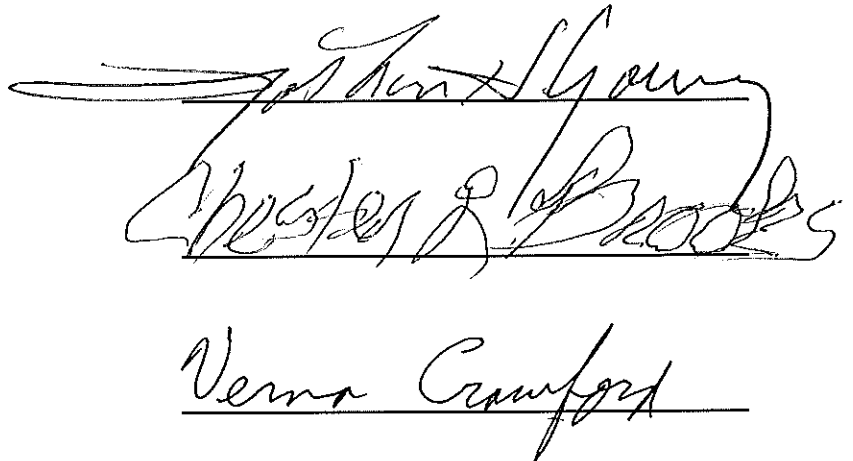 Young
Chester L. Brooks
Verna Crawford